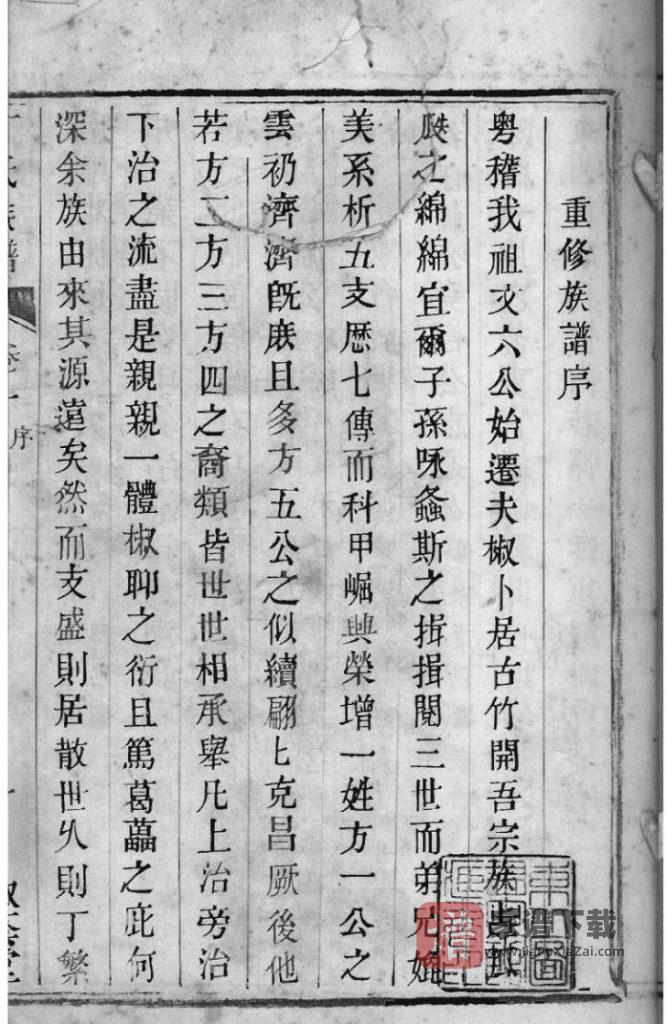 重修族譜序
粤稽我祖文六公始遷夫椒卜居古竹開吾宗族
瓞之綿綿宜爾子孫咏螽斯之揖揖閱三世而弟兄媲
美系析五支歷七傳而科甲崛興榮增一姓方一公之
雲礽濟濟旣庶且多方五公之似續翩匕克昌厥後他
若方二方三方四之裔類皆世世相承舉凡上治旁治
下治之流盡是親親一體椒聊之衍且篤葛藟之庇何
深余族由來其源遠矣然而支盛則居散世久則丁繁
氏族譜
序
下载